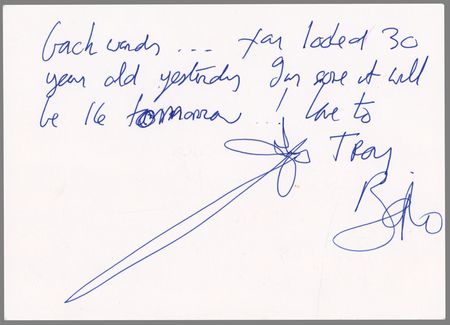 backwards ... you looked 30
years old yesterday I'm sure it will
be 16 tomorrow ...! love to
Troy
Bono